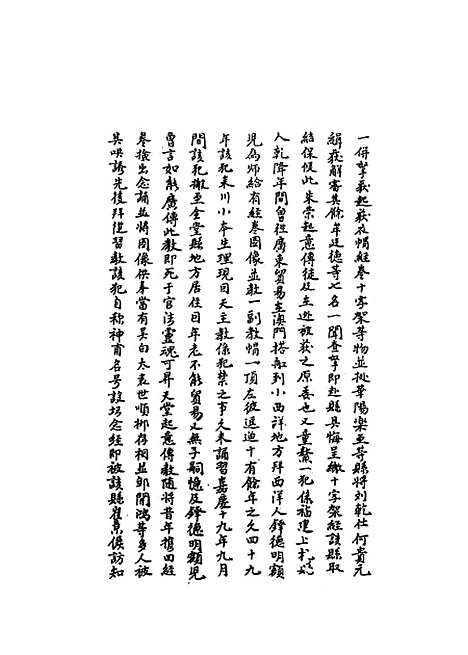 一併拏義起获衣帽經卷十字架等物並挑華陽樂至等縣將刘乾仕何貴元
緝获解審其餘年廷德等七名一聞查拏即赴縣具悔呈繳十字架經該縣取
結保候此朱榮起意傳徒及至逃被获之原委也又童鰲一犯係福建上杭
人乾隆年間曾往廣東貿易至澳門搭船到小西洋地方拜西洋人鐸德明額
児為师給有經卷圖像並教一副教帽一頂左彼逗遛十有餘年之久四十九
年該犯来川小本生理現因天主教係犯禁之事久未誦習嘉慶十九年九月
間該犯搬至金堂縣地方居住因年老不能貿易又無子嗣憶及鐸德明額児
曾言如能廣傳此教即死于官法靈魂可昇天堂起意傳教随將昔年攜回經
卷檢出念誦並將圖像供奉當有吴白太袁世順柳存相並鄒開鴻等多人被
其哄誘先後拜從習教該犯自称神甫名号設坊念經即被該縣崔景俟訪知